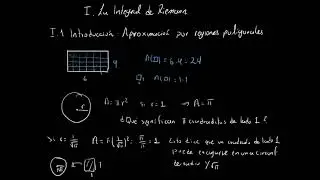 I. La Integral de Riemann
I.1 Introducción. Aproximación por regiones poligonales
4
6
A(□) = 6·4 = 24
A(□) = 1·1
r
A = πr² si r = 1 → A = π
¿Qué significan π cuadraditos de lado 1?
si r = 1/√π A = π(1/√π)² = π/π = 1
Esto dice que un cuadrado de lado 1
puede encogerse en una circunf
de radio 1/√π
1/√π
1
1